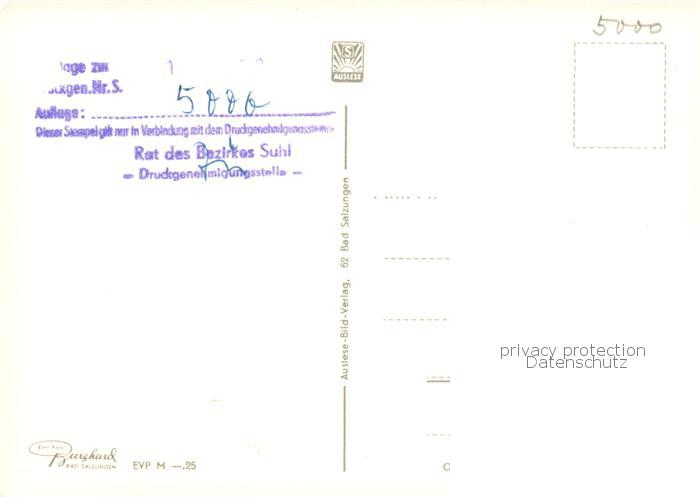 5000
S
AUSLESE
Auflage: 5000
Dieser Stempel gilt nur in Verbindung mit dem Druckgenehmigungsstempel
Rat des Bezirkes Suhl
- Druckgenehmigungsstelle -
Auslese-Bild-Verlag, 62 Bad Salzungen
privacy protection
Datenschutz
Burghard
BAD SALZUNGEN
EVP M —.25